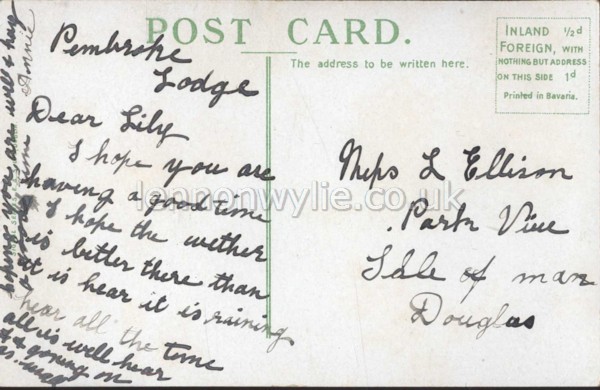 POST CARD.
The address to be written here.
INLAND ½d
FOREIGN, WITH
NOTHING BUT ADDRESS
ON THIS SIDE 1d
Printed in Bavaria.
Pembroke
Lodge
Dear Lily
I hope you are
having a good time
I hope the wether
is better there than
it is hear it is raining
hear all the time
all is well hear
goning on
as well
hoping you are well & hay
time
Annie
Miss L Ellison
Park View
Isle of man
Douglas
lennonwylie.co.uk